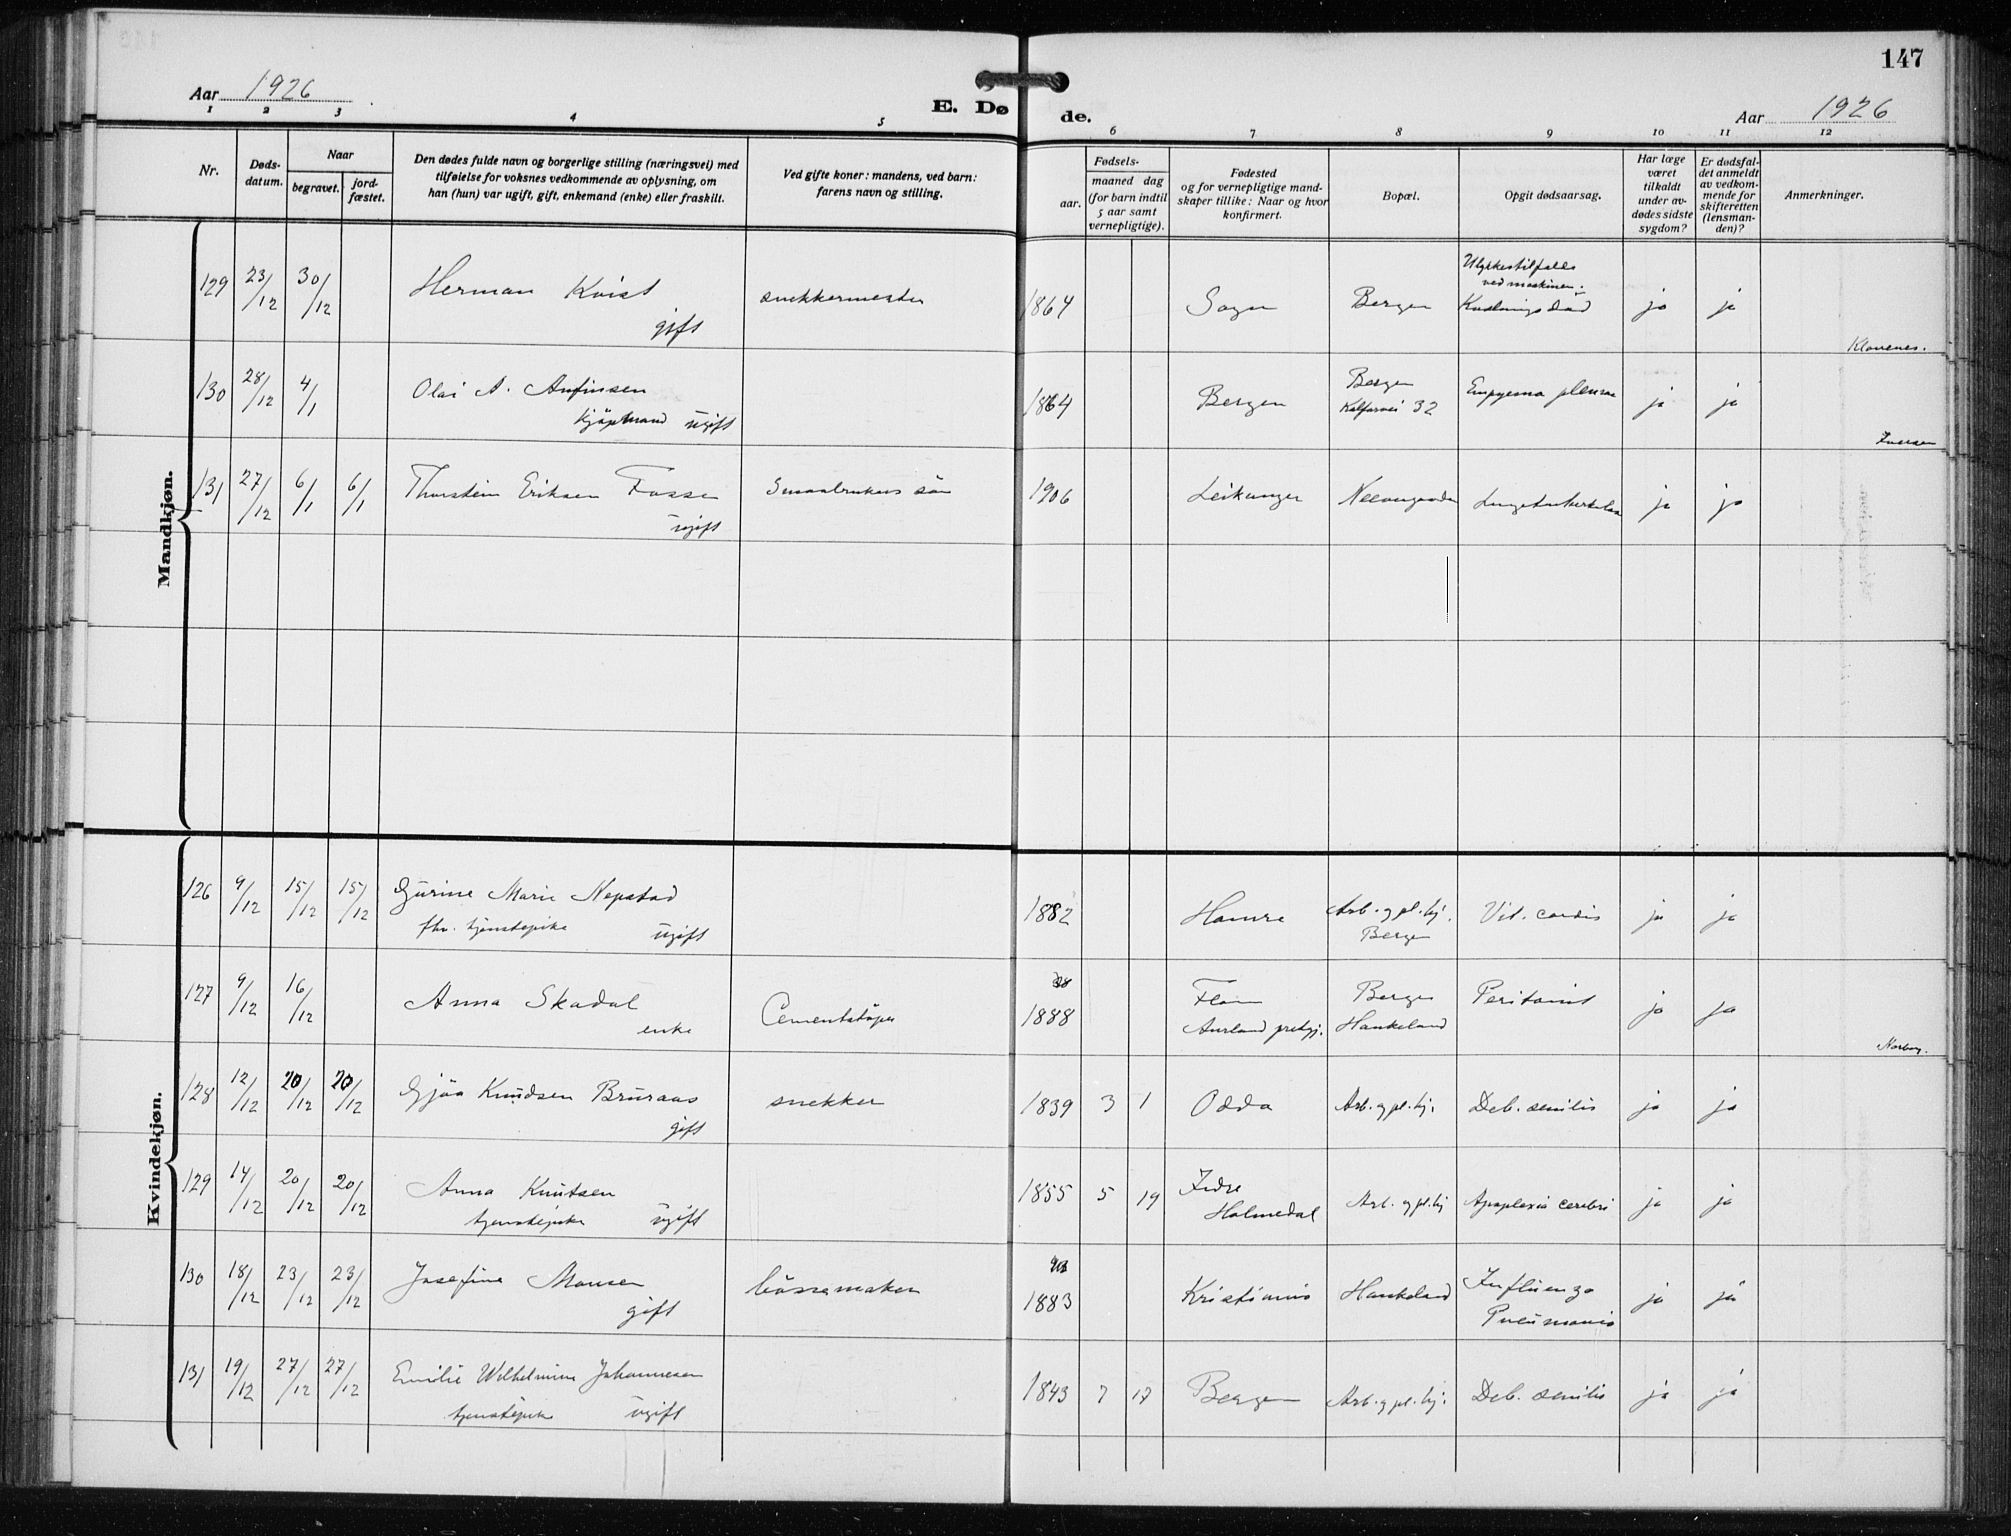 147
Aar 1926
E. Døde.
Aar 1926
1 2 3 4 5 6 7 8 9 10 11 12
Nr.
Døds-
datum.
Naar
begravet.
jord-
fæstet.
Den dødes fulde navn og borgerlige stilling (næringsvei) med
tilføielse for voksnes vedkommende av oplysning, om
han (hun) var ugift, gift, enkemand (enke) eller fraskilt.
Ved gifte koner: mandens, ved barn:
farens navn og stilling.
Fødsels-
aar.
maaned dag
(for barn indtil
5 aar samt
vernepligtige).
Fødested
og for vernepligtige mand-
skaper tillike: Naar og hvor
konfirmert.
Bopæl.
Opgit dødsaarsag.
Har læge
været
tilkaldt
under av-
dødes sidste
sygdom?
Er dødsfal-
det anmeldt
av vedkom-
mende for
skifteretten
(lensman-
den)?
Anmerkninger.
Mandkjøn.
129 23/12 30/12 Herman Kvist snekkermester 1864 Sogn Bergen Ulykkestilfælde ja ja
ved maskiner.
gift
Klovenes.
130 28/12 4/1 Olai A. Anfinsen 1864 Bergen Bergen Empyema pleurae ja ja
Kjøpmand ugift Kalfarvei 32
Iversen
131 27/12 6/1 6/1 Thorstein Eriksen Fosse Smaabrukers søn 1906 Leikanger Neevengaarden Lungetuberkulose ja ja
ugift
Kvindekjøn.
126 9/12 15/12 15/12 Gurine Marie Nepstad 1882 Hamre Arb. og pl.hj. Vit. cordis ja ja
fhv. tjenstepike ugift Bergen
127 9/12 16/12 Anna Skadal Cementstøper 1888 Flam Bergen Peritonit ja ja
enke Aurland prestgj. Haukeland
128 12/12 20/12 20/12 Gjøa Knudsen Bruraas snekker 1839 3 1 Odda Arb. og pl.hj. Deb. senilis ja ja
gift
129 14/12 20/12 20/12 Anna Knutsen 1855 5 19 Indre Arb. og pl.hj Apoplexia cerebri ja ja
tjenstepike ugift Holmedal
130 18/12 23/12 23/12 Josefine Monsen bøssemaker 1883 Kristiania Haukeland Influenza ja ja
gift Pneumonia
131 19/12 27/12 27/12 Emilie Wilhelmine Johannesen 1843 7 17 Bergen Arb. og pl.hj. Deb. senilis ja ja
tjenstepike ugift